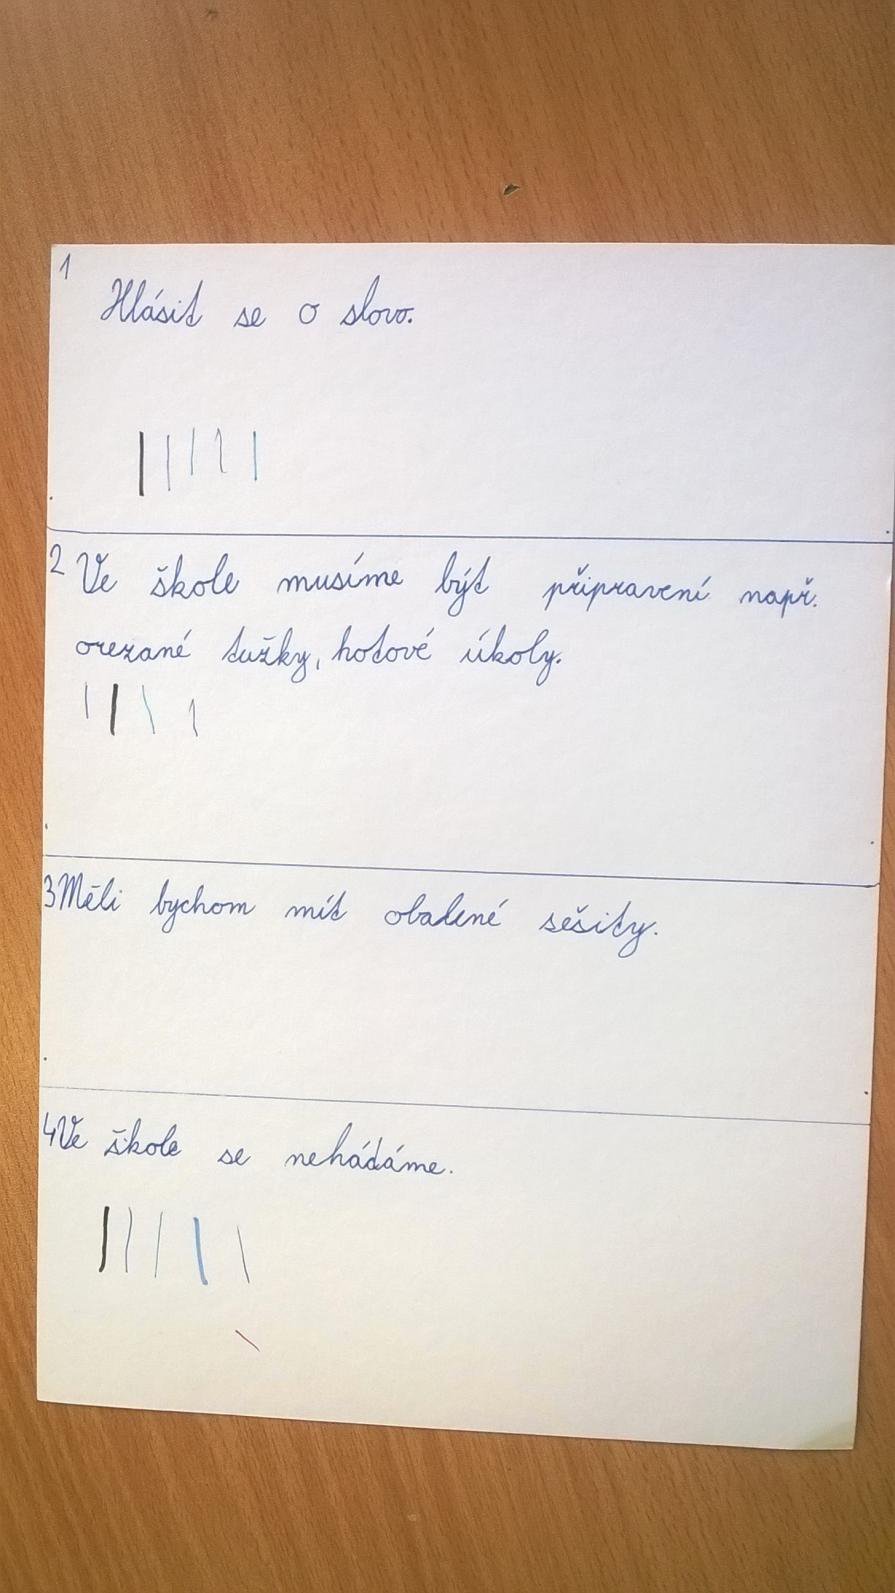 1
Hlásit se o slovo.
2 Ve škole musíme být připravení např.
orezané tužky, hotové úkoly.
3 Měli bychom mít obalené sešity.
4 Ve škole se neháďáme.